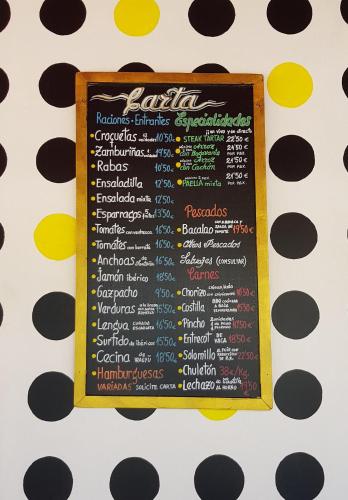 Carta
Raciones - Entrantes
Croquetas 10'50€
Zamburiñas 19'50€
Rabas 10'50€
Ensaladilla 12'50€
Ensalada mixta 12'50€
Esparragos 13'50€
Tomates 12'50€
Tomates con burrata 16'50€
Anchoas 16'50€
Jamón ibérico 18'50€
Gazpacho 9'50€
Verduras 15'50€
Lengua 15'50€
Surtido de ibérico 15'50€
Cecina 18'50€
Hamburguesas
VARIADAS SOLICITE CARTA
Especialidades
¡¡en vivo y en directo
STEAK TARTAR 22'50€
Arroz 24'50€
con Bogavante POR PAX.
Arroz 21'50€
con Cachón POR PAX.
PAELLA mixta 21'50€
POR PAX.
Pescados
Bacalao 19'50€
Otros Pescados
Salvajes (CONSULTAR)
Carnes
Chorizo 16'50€
Costilla 15'50€
Pincho 17'50€
Entrecot DE VACA 18'50€
Solomillo 22'50€
Chuletón 38€/Kg.
Lechazo AL HORNO 19'50€